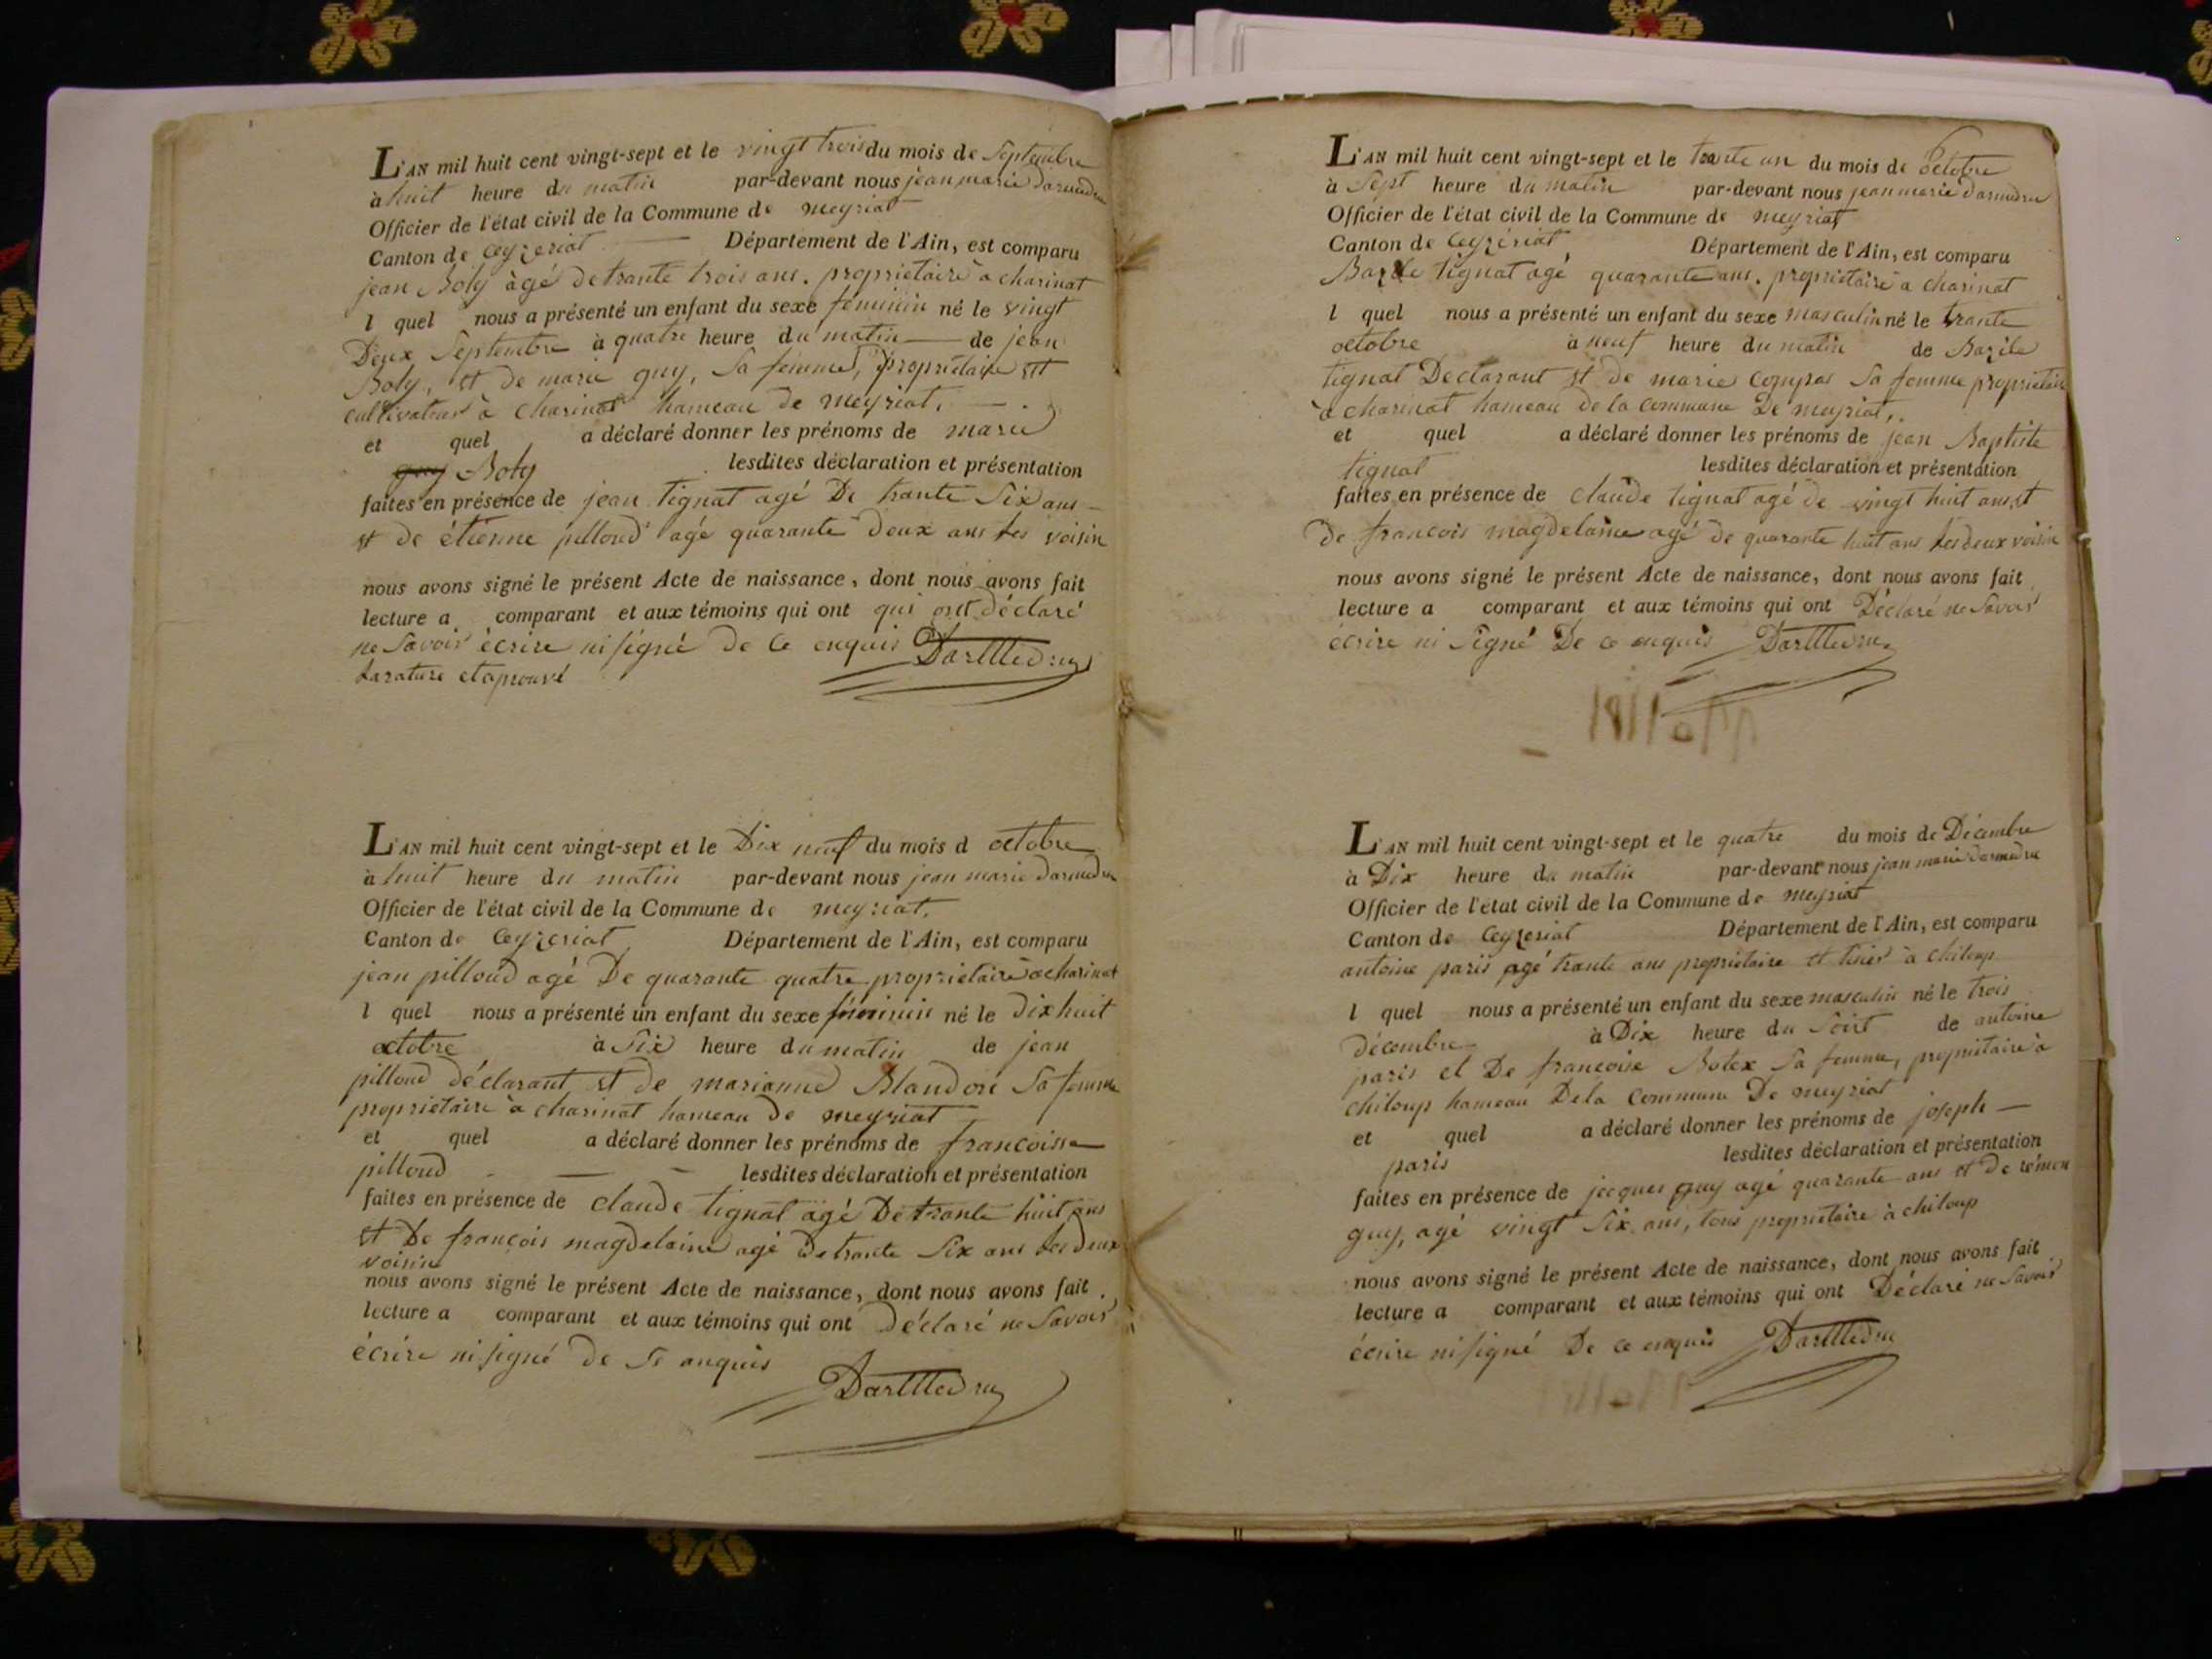 L'AN mil huit cent vingt-sept et le vingt trois du mois de Septembre
à huit heure du matin par-devant nous jean marie darmedru
Officier de l'état civil de la Commune de meyriat
Canton de Ceyzeriat Département de l'Ain, est comparu
jean Boly àgé de trante trois ans. proprietaire a charinat
l quel nous a présenté un enfant du sexe féminin né le vingt
Deux Septembre à quatre heure du matin de jean
Boly, et de marie guy, sa femme, proprietaire et
cultivateur à charinat hameau de meyriat.
et quel a déclaré donner les prénoms de marie
guy Boly lesdites déclaration et présentation
faites en présence de jean tignat agé De trante Six ans
et de étienne pilloud agé quarante deux ans voisin
nous avons signé le présent Acte de naissance, dont nous avons fait
lecture a comparant et aux témoins qui ont qui ont déclaré
ne Savoir écrire ni signé de ce enquis Darmedru
L'AN mil huit cent vingt-sept et le Dix neuf du mois d octobre
à huit heure du matin par-devant nous jean marie darmedru
Officier de l'état civil de la Commune de meyriat.
Canton de Ceyzeriat Département de l'Ain, est comparu
jean pilloud agé De quarante quatre proprietaire a charinat
l quel nous a présenté un enfant du sexe féminin né le dix huit
octobre à Six heure du matin de jean
pilloud déclarant et de marianne Blandon Sa femme
proprietaire a charinat hameau de meyriat
et quel a déclaré donner les prénoms de francoise
pilloud lesdites déclaration et présentation
faites en présence de claude tignat agé De trante huit ans
et De françois magdelaine agé de trante Six ans deux
voisin
nous avons signé le présent Acte de naissance, dont nous avons fait
lecture a comparant et aux témoins qui ont Déclaré ne Savoir
écrire ni signé de se anquis
Darmedru
L'AN mil huit cent vingt-sept et le trante un du mois de Octobre
à Sept heure du matin par-devant nous jean marie darmedru
Officier de l'état civil de la Commune de meyriat
Canton de Ceyzériat Département de l'Ain, est comparu
tignat agé quarante ans. proprietaire a charinat
l quel nous a présenté un enfant du sexe masculin né le trante
octobre à neuf heure du matin de Bazile
tignat Declarant et de marie compas sa femme proprietaire
a charinat hameau de la commune De meyriat.
et quel a déclaré donner les prénoms de jean Baptiste
tignat lesdites déclaration et présentation
faites en présence de claude tignat agé de vingt huit ans et
De francois magdelaine agé de quarante huit ans deux voisin
nous avons signé le présent Acte de naissance, dont nous avons fait
lecture a comparant et aux témoins qui ont Déclaré ne Savoir
écrire ni Signé De ce enquis Darmedru
L'AN mil huit cent vingt-sept et le quatre du mois de Décembre
à Dix heure du matin par-devant nous jean marie darmedru
Officier de l'état civil de la Commune de meyriat
Canton de Ceyzeriat Département de l'Ain, est comparu
antoine paris agé trante ans proprietaire et à chiloup
l quel nous a présenté un enfant du sexe masculin né le trois
décembre à Dix heure du Soirt de antoine
paris et De francoise Botex Sa femme, proprietaire à
chiloup hameau De la Commune De meyriat
et quel a déclaré donner les prénoms de joseph
paris lesdites déclaration et présentation
faites en présence de jacques guy agé quarante ans et de rémon
guy, agé vingt Six ans, tous proprietaire à chiloup
nous avons signé le présent Acte de naissance, dont nous avons fait
lecture a comparant et aux témoins qui ont Déclaré ne Savoir
écrire ni signé De ce enquis Darmedru